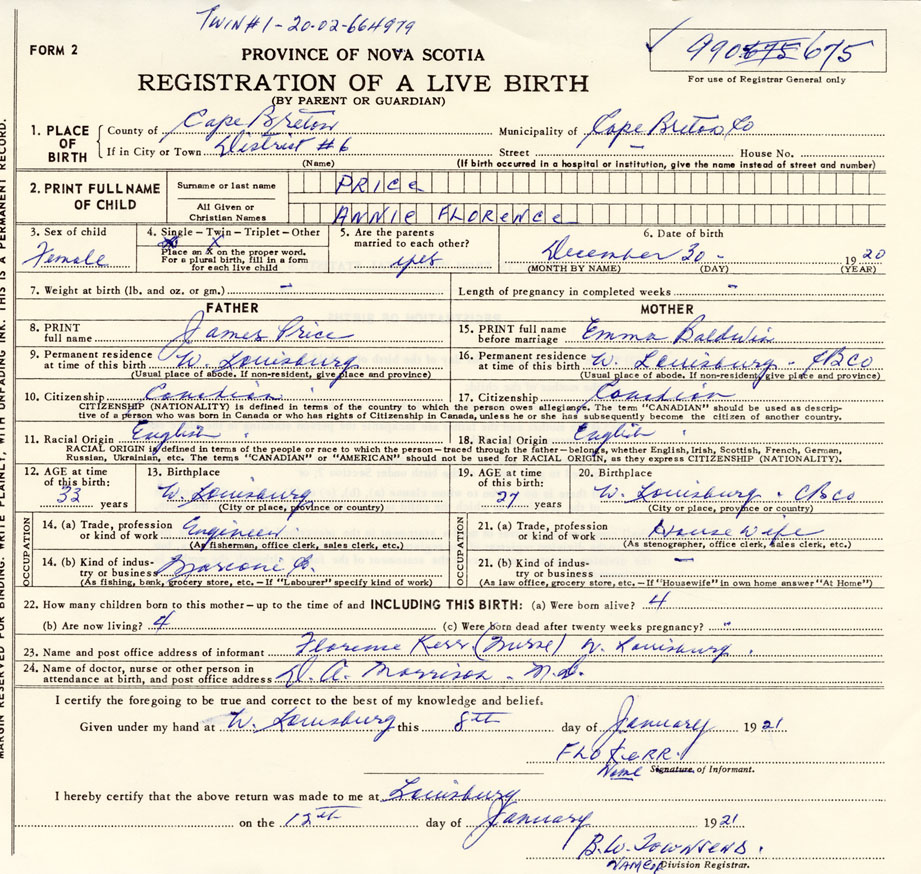 TWIN #1-20-02-664979
FORM 2
PROVINCE OF NOVA SCOTIA
REGISTRATION OF A LIVE BIRTH
(BY PARENT OR GUARDIAN)
✓ 990 675 675
For use of Registrar General only
MARGIN RESERVED FOR BINDING. WRITE PLAINLY, WITH UNFADING INK. THIS IS A PERMANENT RECORD.
1. PLACE OF BIRTH
County of Cape Breton Municipality of Cape Breton Co
If in City or Town District #6 Street – House No.
(Name) (If birth occurred in a hospital or institution, give the name instead of street and number)
2. PRINT FULL NAME OF CHILD
Surname or last name PRICE
All Given or Christian Names ANNIE FLORENCE
3. Sex of child
Female
4. Single – Twin – Triplet – Other
X
Place an X on the proper word.
For a plural birth, fill in a form
for each live child
5. Are the parents
married to each other?
yes
6. Date of birth
December 30 - 1920
(MONTH BY NAME) (DAY) (YEAR)
7. Weight at birth (lb. and oz. or gm.) – Length of pregnancy in completed weeks –
FATHER
8. PRINT
full name James Price
9. Permanent residence
at time of this birth W. Louisburg
(Usual place of abode. If non-resident, give place and province)
MOTHER
15. PRINT full name
before marriage Emma Baldwin
16. Permanent residence
at time of this birth W. Louisburg - CBCo
(Usual place of abode. If non-resident, give place and province)
10. Citizenship Canadian 17. Citizenship Canadian
CITIZENSHIP (NATIONALITY) is defined in terms of the country to which the person owes allegiance. The term "CANADIAN" should be used as descrip-
tive of a person who was born in Canada or who has rights of Citizenship in Canada, unless he or she has subsequently become the citizen of another country.
11. Racial Origin English 18. Racial Origin English
RACIAL ORIGIN is defined in terms of the people or race to which the person – traced through the father – belongs, whether English, Irish, Scottish, French, German,
Russian, Ukrainian, etc. The terms "CANADIAN" or "AMERICAN" should not be used for RACIAL ORIGIN, as they express CITIZENSHIP (NATIONALITY).
12. AGE at time
of this birth:
32 years
13. Birthplace
W. Louisburg
(City or place, province or country)
19. AGE at time
of this birth:
27 years
20. Birthplace
W. Louisburg. CBCo
(City or place, province or country)
OCCUPATION
14. (a) Trade, profession
or kind of work Engineer
(As fisherman, office clerk, sales clerk, etc.)
14. (b) Kind of indus-
try or business Marconi
(As fishing, bank, grocery store, etc. – If "Labourer" specify kind of work)
OCCUPATION
21. (a) Trade, profession
or kind of work House wife
(As stenographer, office clerk, sales clerk, etc.)
21. (b) Kind of indus-
try or business –
(As law office, grocery store, etc. – If "Housewife" in own home answer "At Home")
22. How many children born to this mother – up to the time of and INCLUDING THIS BIRTH: (a) Were born alive? 4
(b) Are now living? 4 (c) Were born dead after twenty weeks pregnancy? "
23. Name and post office address of informant Florence Kerr (Nurse) W. Louisburg.
24. Name of doctor, nurse or other person in
attendance at birth, and post office address D. A. Morrison - M.D.
I certify the foregoing to be true and correct to the best of my knowledge and belief.
Given under my hand at W. Louisburg this 8th day of January 1921
FLO KERR.
Name Signature of Informant.
I hereby certify that the above return was made to me at Louisburg
on the 12th day of January 1921
B.W. TOWNSEND.
NAME of Division Registrar.